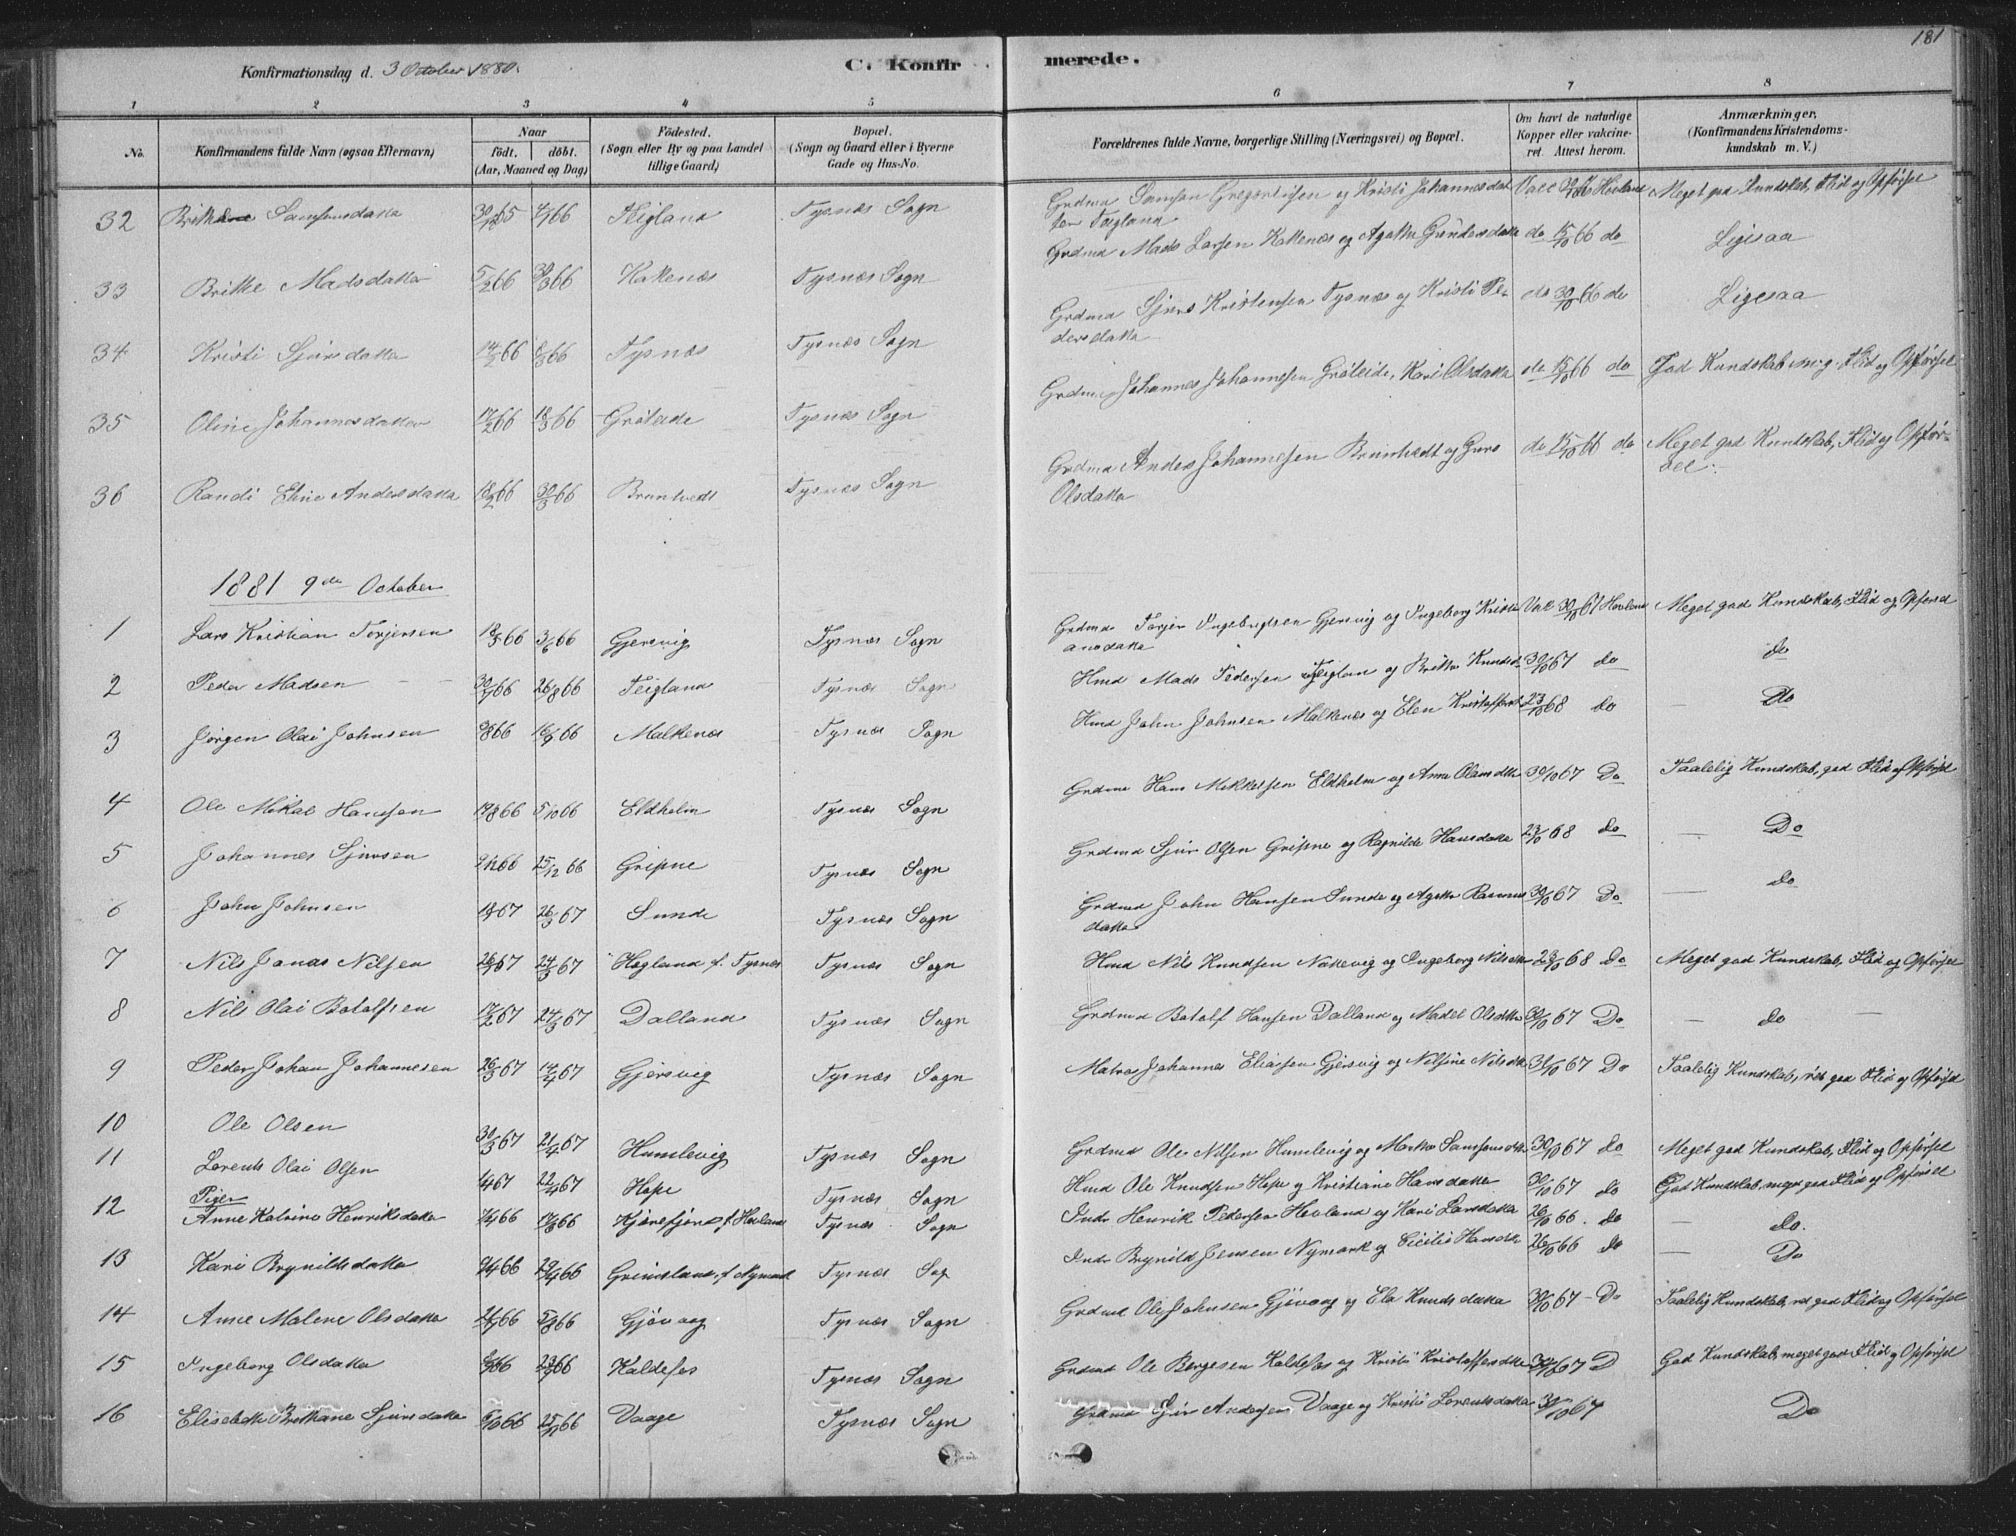 181
Konfirmationsdag d. 3 October 1880.
C. Konfirmerede.
1 2 3 4 5 6 7 8
No.
Konfirmandens fulde Navn (ogsaa Efternavn)
Naar
født. døbt.
(Aar, Maaned og Dag)
Fødested.
(Sogn eller By og paa Landet
tillige Gaard)
Bopæl.
(Sogn og Gaard eller i Byerne
Gade og Hus-No.
Forældrenes fulde Navne, borgerlige Stilling (Næringsvei) og Bopæl.
Om havt de naturlige
Kopper eller vakcine-
ret. Attest herom.
Anmærkninger,
(Konfirmandens Kristendoms-
kundskab m. V.)
32 Samsonsdatter Teigland Tysnæs Sogn Grdmd Samson Gregoriussen og Kristi Johannesdat Vacc Hovland Meget god Kundskab, Flid og Opførsel
ter Teigland
33 Brithe Madsdatter 5/2 66 30/3 66 Kakenæs Tysnæs Sogn Grdmd Mads Larsen Kakenæs og Agatha Gundersdatter do 15/10 66 do Ligesaa
34 Kristi Sjursdatter 14/2 66 Tysnæs Tysnæs Sogn Grdmd Sjurs Kristensen Tysnæs og Kristi Pe- do 30/10 66 do Ligesaa
dersdatter
35 Oline Johannesdatter 17/2 66 18/3 66 Gröteide Tysnæs Sogn Grdmd Johannes Johannesen Gröteide, Kari Olsdatter do 15/10 66 do God Kundskab, m. g. Flid og Opførsel
36 Randi Eline Andersdatter 18/2 66 30/3 66 Bruntvedt Tysnæs Sogn Grdmd Anders Johannesen Bruntvedt og Guro do 15/10 66 do Meget god Kundskab, Flid og Opfør-
Olsdatter sel.
1881 9de October
1 Lars Kristian Torjersen 18/5 66 3/6 66 Gjersvig Tysnæs Sogn Grdmd Torjer Ingebrigtsen Gjersvig og Ingeborg Kristi Vac 30/10 67 Hovland Meget god Kundskab, Flid og Opførsel
ansdatter
2 Peder Madsen 30/7 66 26/8 66 Teigland Tysnæs Sogn Hmd Mads Pedersen Teigland og Britha Knudsd 30/10 67 do do
3 Jørgen Olai Johnsen 16/9 66 Malkenæs Tysnæs Sogn Hmd John Johnsen Malkenæs og Elen Kristoffersd 23/10 68 do Do
4 Ole Mikal Hansen 19/8 66 5/10 66 Eldholm Tysnæs Sogn Grdmd Hans Mikkelsen Eldholm og Anna Olausdtr 30/10 67 Do Taalelig Kundskab, god Flid og Opførsel
5 Johannes Sjursen 25/12 66 Gripne Tysnæs Sogn Grdmd Sjur Olsen Gripne og Ragnilde Hansdatter 23/10 68 do Do
6 John Johnsen 26/3 67 Sunde Tysnæs Sogn Grdmd John Hansen Sunde og Agatha Rasmus 30/10 67 Do do
datter
7 Nils Jonas Nilsen 24/3 67 Hogland f. Tysnæs Tysnæs Sogn Hmd Nils Knudsen Nakevig og Ingeborg Nilsdtr 23/10 68 Do Meget god Kundskab, Flid og Opførsel
8 Nils Olai Botolfsen 17/2 67 24/3 67 Dalland Tysnæs Sogn Grdmd Botolf Hansen Dalland og Madel Olsdtr 30/10 67 Do do
9 Peder Johan Johannesen 26/3 67 14/4 67 Gjersvig Tysnæs Sogn Matros Johannes Eliasen Gjersvig og Nilsine Nilsdtr 31/10 67 Do Taalelig Kundskab, ret god Flid og Opførsel
10 Ole Olsen 30/3 67 21/4 67 Humlevig Tysnæs Sogn Grdmd Ole Nilsen Humlevig og Martha Samsonsdtr 30/10 67 do Meget god Kundskab, Flid og Opførsel
11 Lorents Olai Olsen 1/4 67 22/4 67 Hope Tysnæs Sogn Hmd Ole Knudsen Hope og Kristiane Hansdatter 30/10 67 do God Kundskab, meget god Flid og Opførsel
Piger
12 Anne Katrine Henriksdatter Kjærefjord f. Hovland Tysnæs Sogn Indr Henrik Pedersen Hovland og Kari Larsdatter 26/10 66. do do.
13 Kari Brynildsdatter 29/4 66 Grimsland, f. Nymark Tysnæs Sog Indr Brynild Jensen Nymark og Cicilie Hansdtr 26/10 66 do Do
14 Anne Malene Olsdatter 5/8 66 Gjövaag Tysnæs Sogn Grdmd Ole Johnsen Gjövaag og Ela Knudsdatter 30/10 67 - Do Taalelig Kundskab, ret god Flid og Opførsel
15 Ingeborg Olsdatter Kaldefos Tysnæs Sogn Grdmd Ole Borgesen Kaldefos og Kristi Kristoffersdtr 30/10 67 D God Kundskab, meget god Flid og Opførsel
16 Elisabeth Brithane Sjursdatter 6/10 66 25/11 66 Vaage Tysnæs Sogn Grdmd Sjur Andersen Vaage og Kristi Lorentsdatter 30/10 67 Do